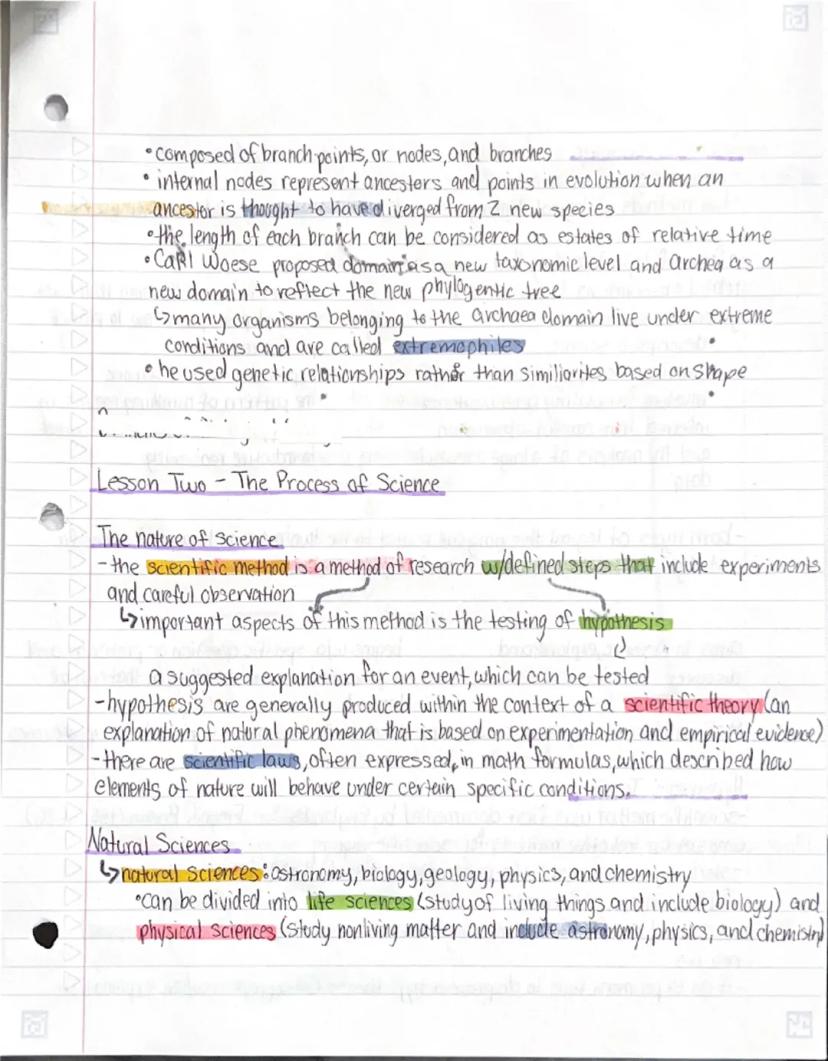 •composed of branch points, or nodes, and branches
•internal nodes represent ancestors and points in evolution when an
ancestor is thought to have diverged from 2 new species
•the length of each branch can be considered as estates of relative time
•Carl Woese proposed domain as a new taxonomic level and Archea as a
new domain to reflect the new phylogentic tree
↳many organisms belonging to the archaea domain live under extreme
conditions and are called extremophiles
•he used genetic relationships rather than similiarites based on shape
Lesson Two - The Process of Science
The nature of Science
-the scientific method is a method of research w/defined steps that include experiments
and careful observation
↳important aspects of this method is the testing of hypothesis
a suggested explanation for an event, which can be tested
-hypothesis are generally produced within the context of a scientific theory (an
explanation of natural phenomena that is based on experimentation and empirical evidence)
-there are scientific laws, often expressed, in math formulas, which described how
elements of nature will behave under certain specific conditions.
Natural Sciences
↳natural sciences: astronomy, biology, geology, physics, and chemistry
•can be divided into life sciences (study of living things and include biology) and
physical sciences (study nonliving matter and include astronomy, physics, and chemistry)